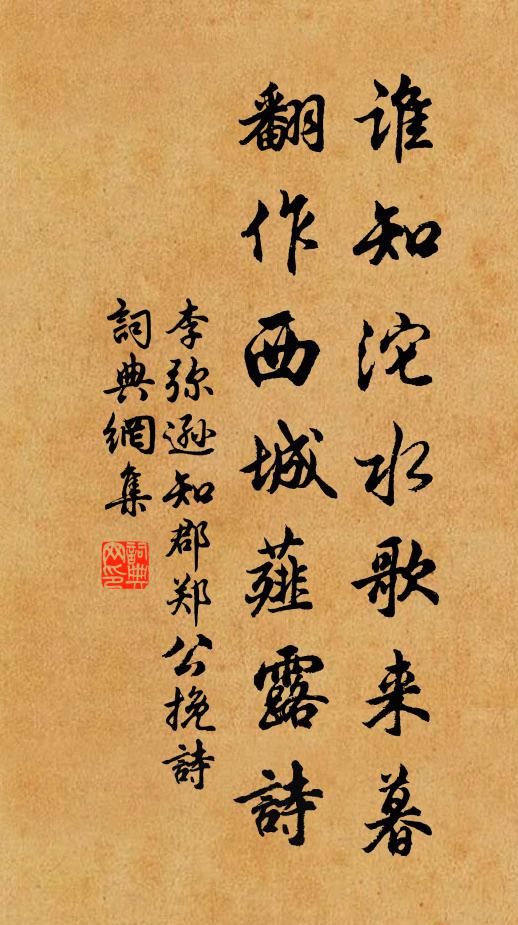 谁知沱水歌来暮
翻作西城薤露詩
李弥遜知郡郑公挽詩
詞典網集
詞典
网印